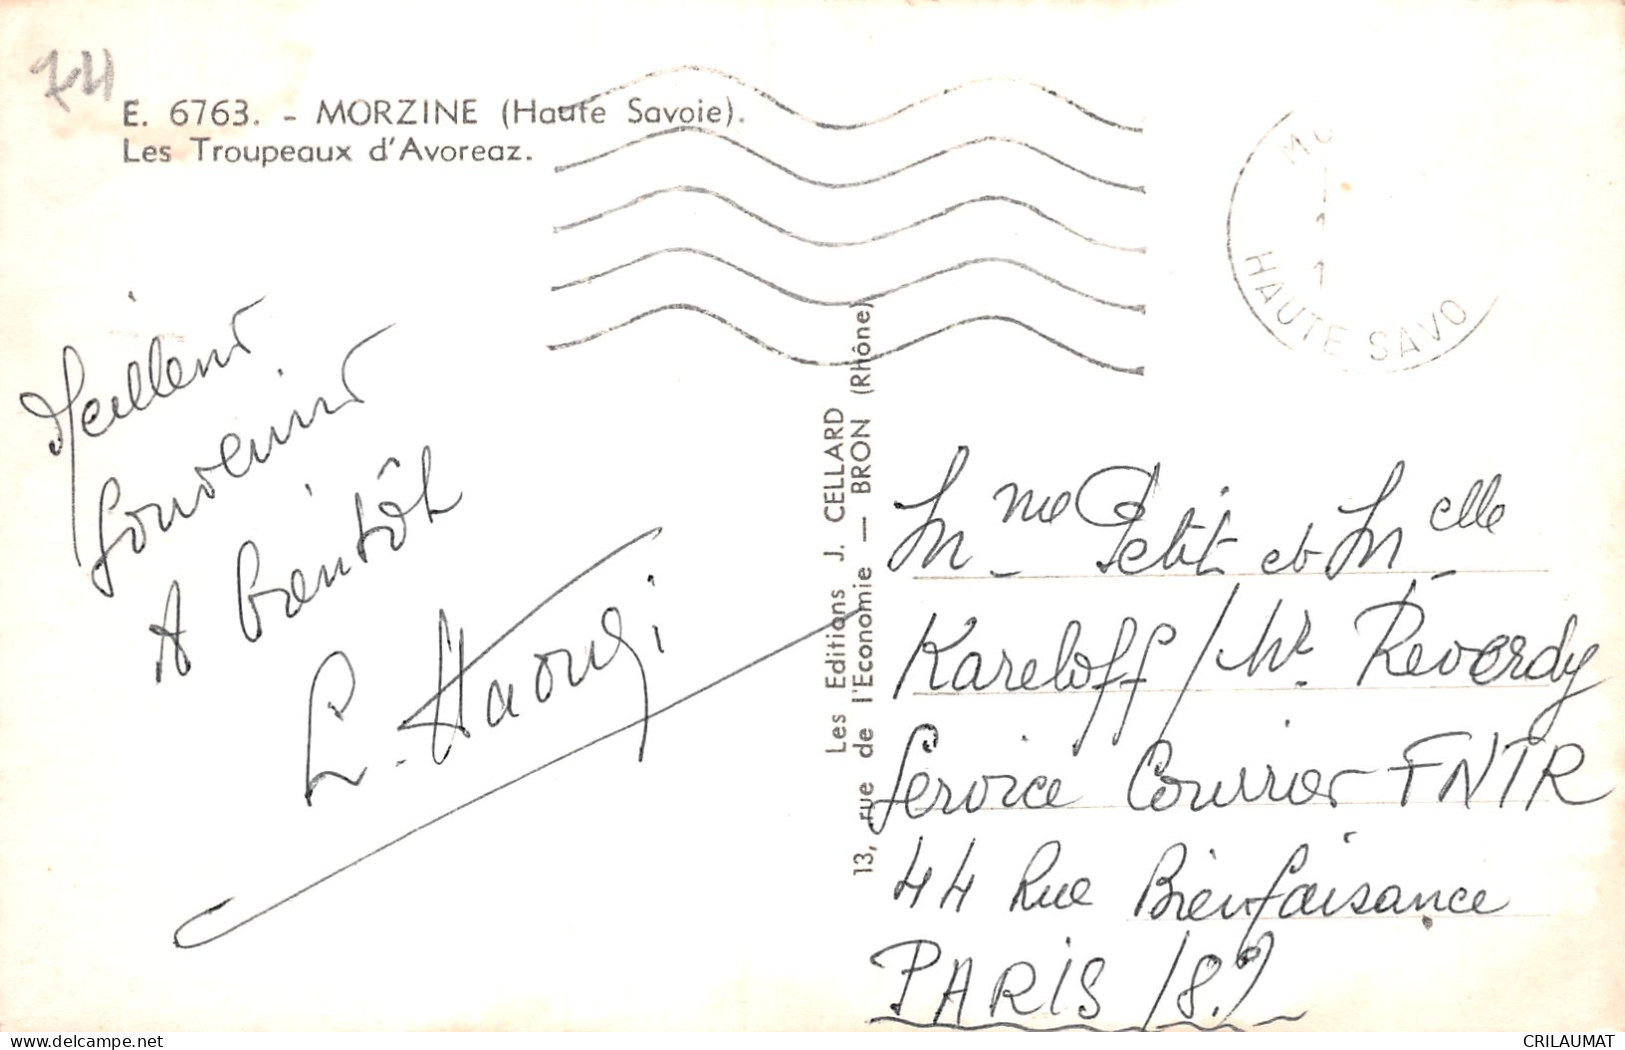 74
E. 6763. - MORZINE (Haute Savoie).
Les Troupeaux d'Avoreaz.
HAUTE SAVO
Meilleur
Souvenir
A bientôt
Les Editions J. CELLARD
13, rue de l'Economie — BRON (Rhône)
Mme Petit et Melle
Kareloff / Mr. Reverdy
Service Courrier FNTR
44 Rue Bienfaisance
PARIS / 8.
delcampe.net
CRILAUMAT